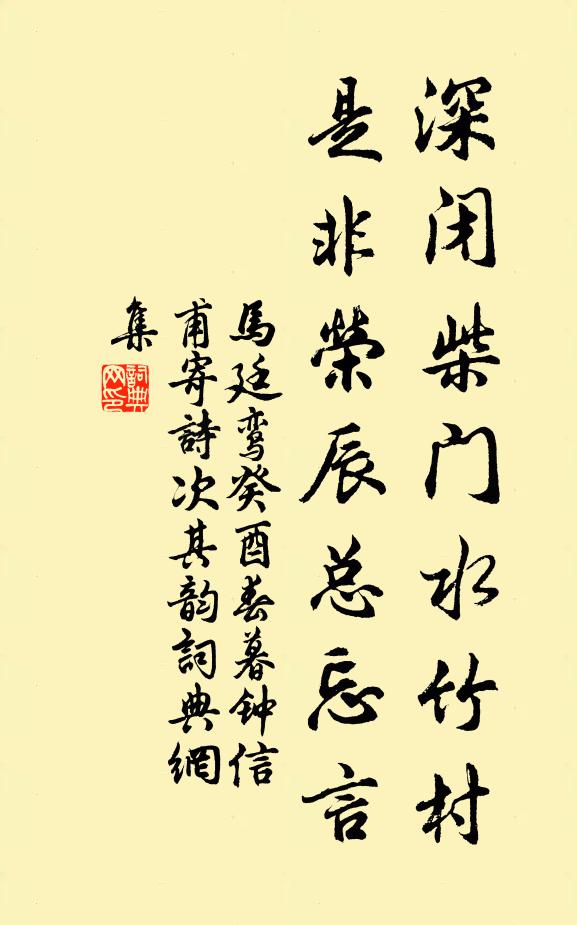 深闭柴门水竹村
是非荣辰总忘言
馬廷鸾癸酉春暮钟信
甫寄詩次其韵詞典網
集
詞典
网印